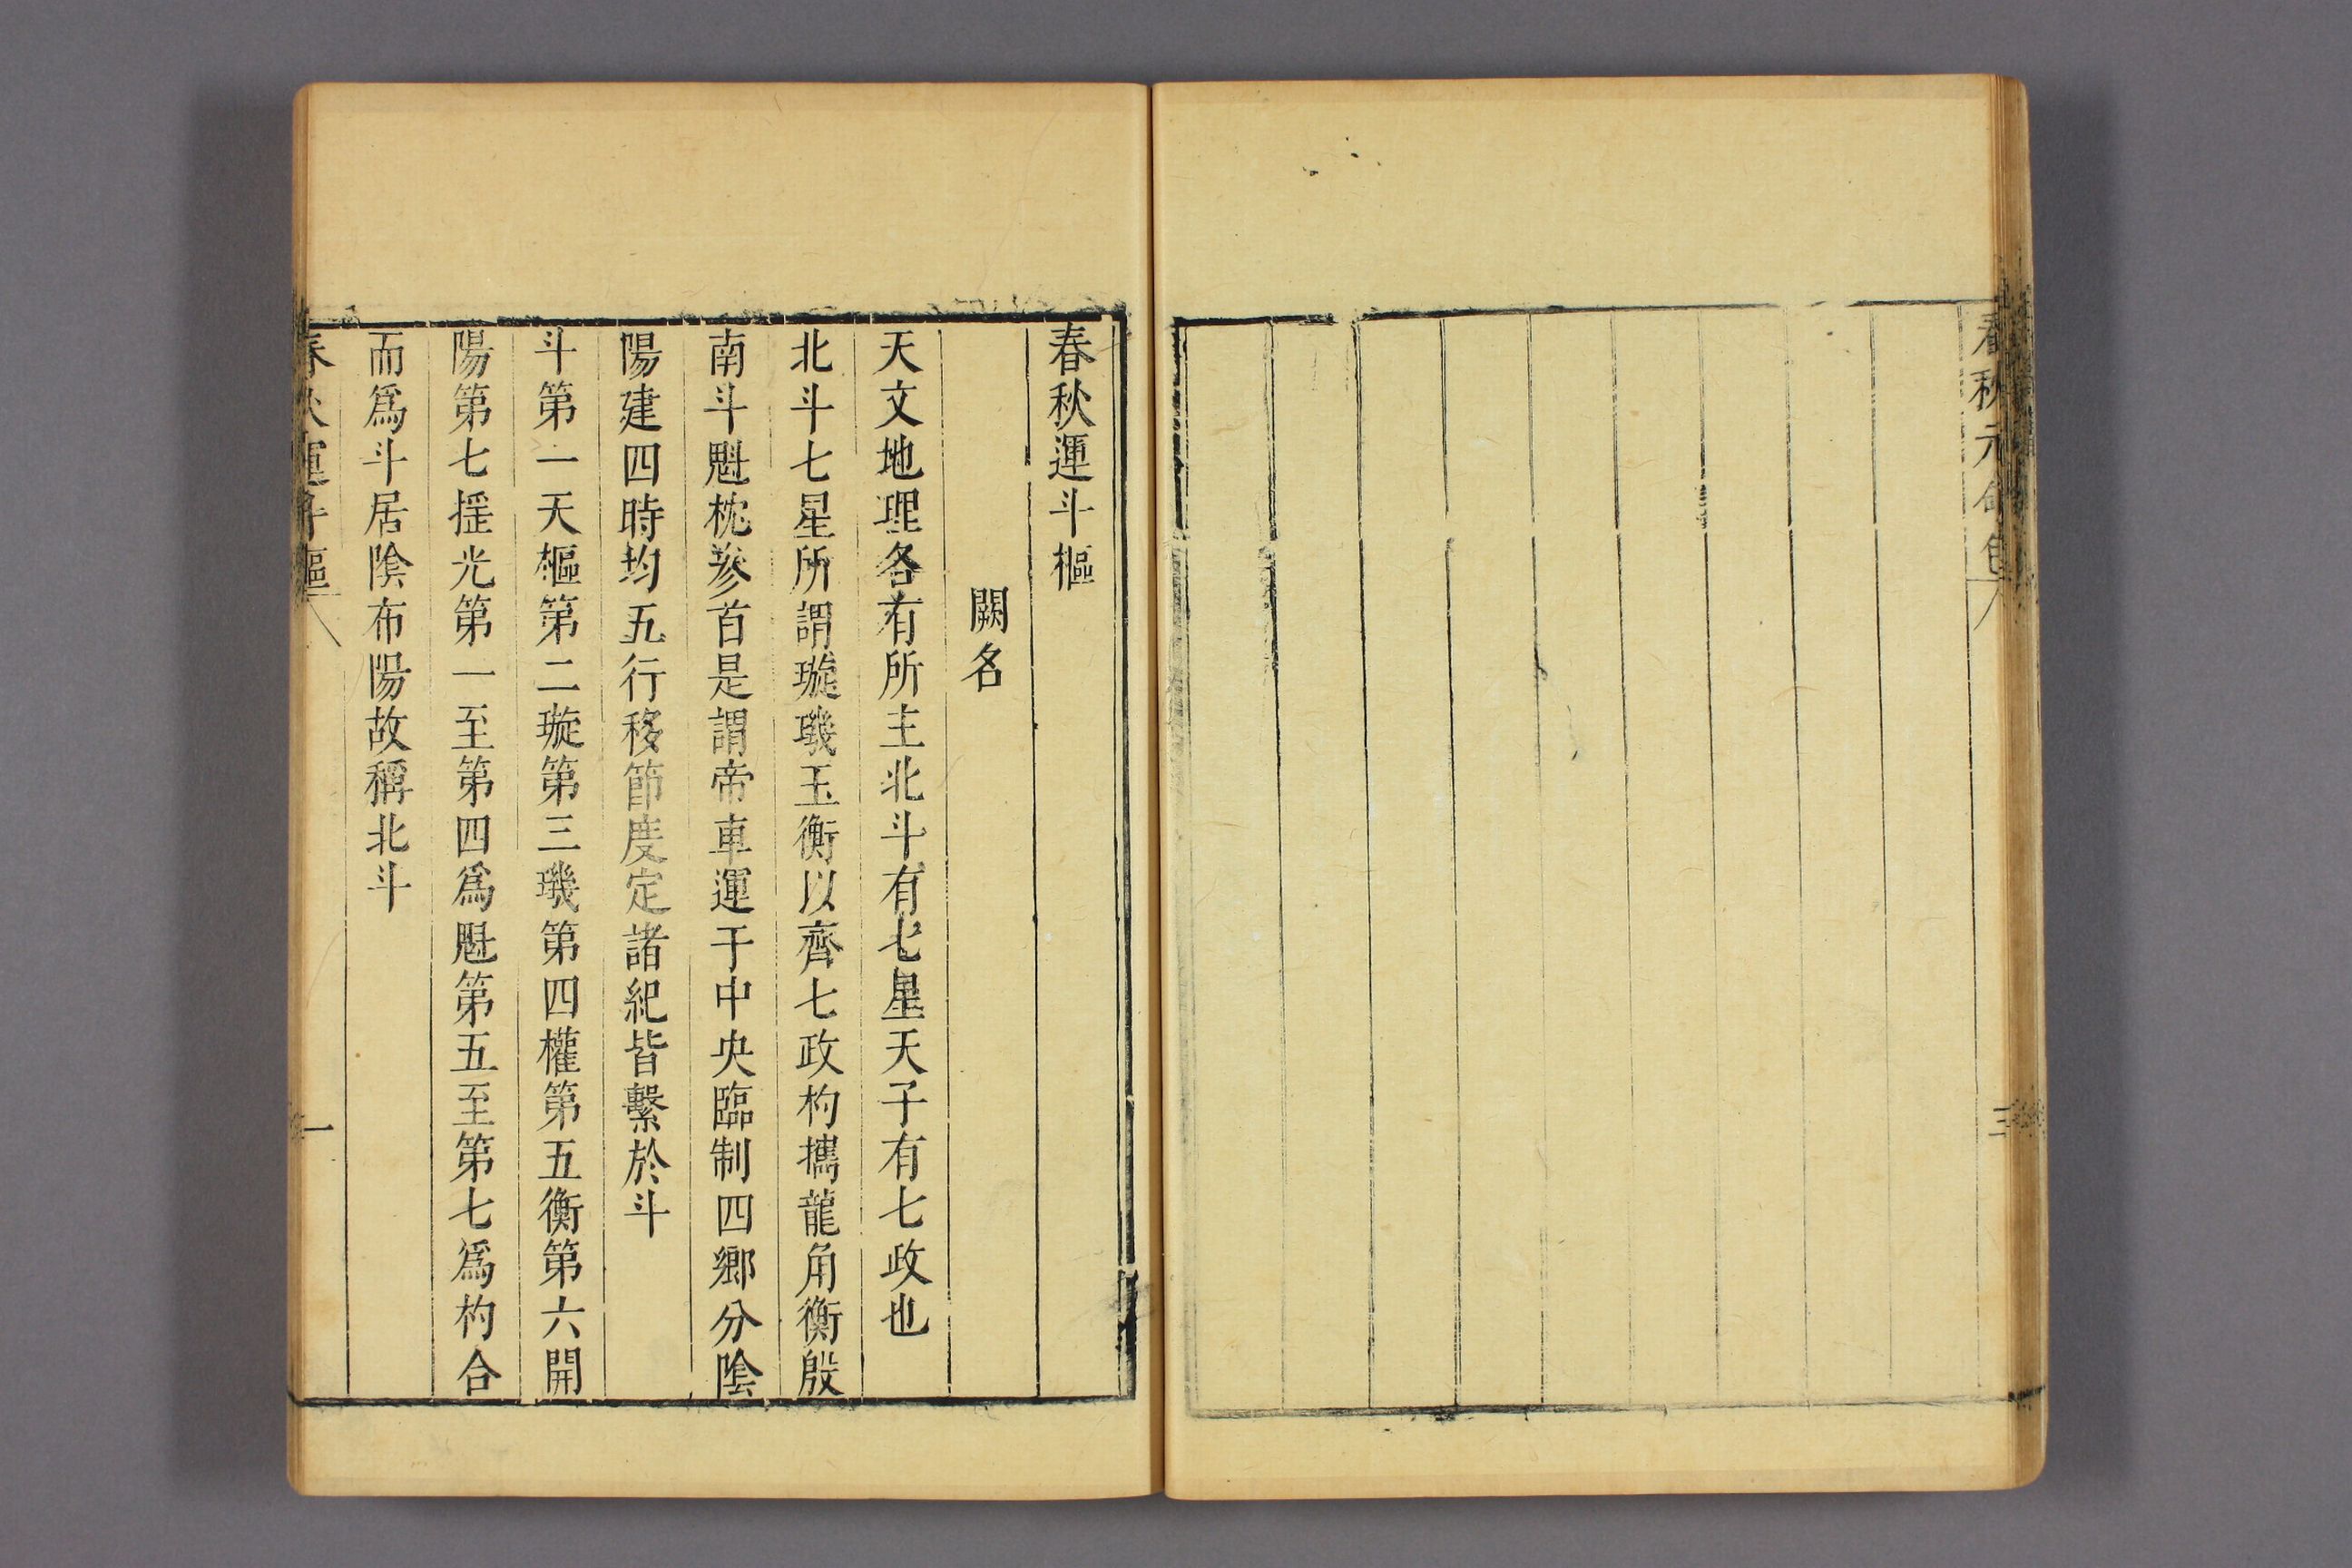 春秋元命包
三
春秋運斗樞
闕名
天文地理各有所主北斗有七星天子有七政也
北斗七星所謂璇璣玉衡以齊七政杓攜龍角衡殷
南斗魁枕參首是謂帝車運于中央臨制四鄉分陰
陽建四時均五行移節度定諸紀皆繫於斗
斗第一天樞第二璇第三璣第四權第五衡第六開
陽第七搖光第一至第四爲魁第五至第七爲杓合
而爲斗居陰布陽故稱北斗
春秋運斗樞
一